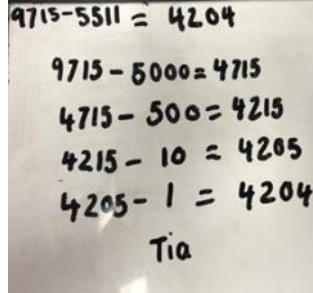 9715-5511 = 4204
9715-5000=4715
4715-500=4215
4215-10 = 4205
4205-1 = 4204
Tia